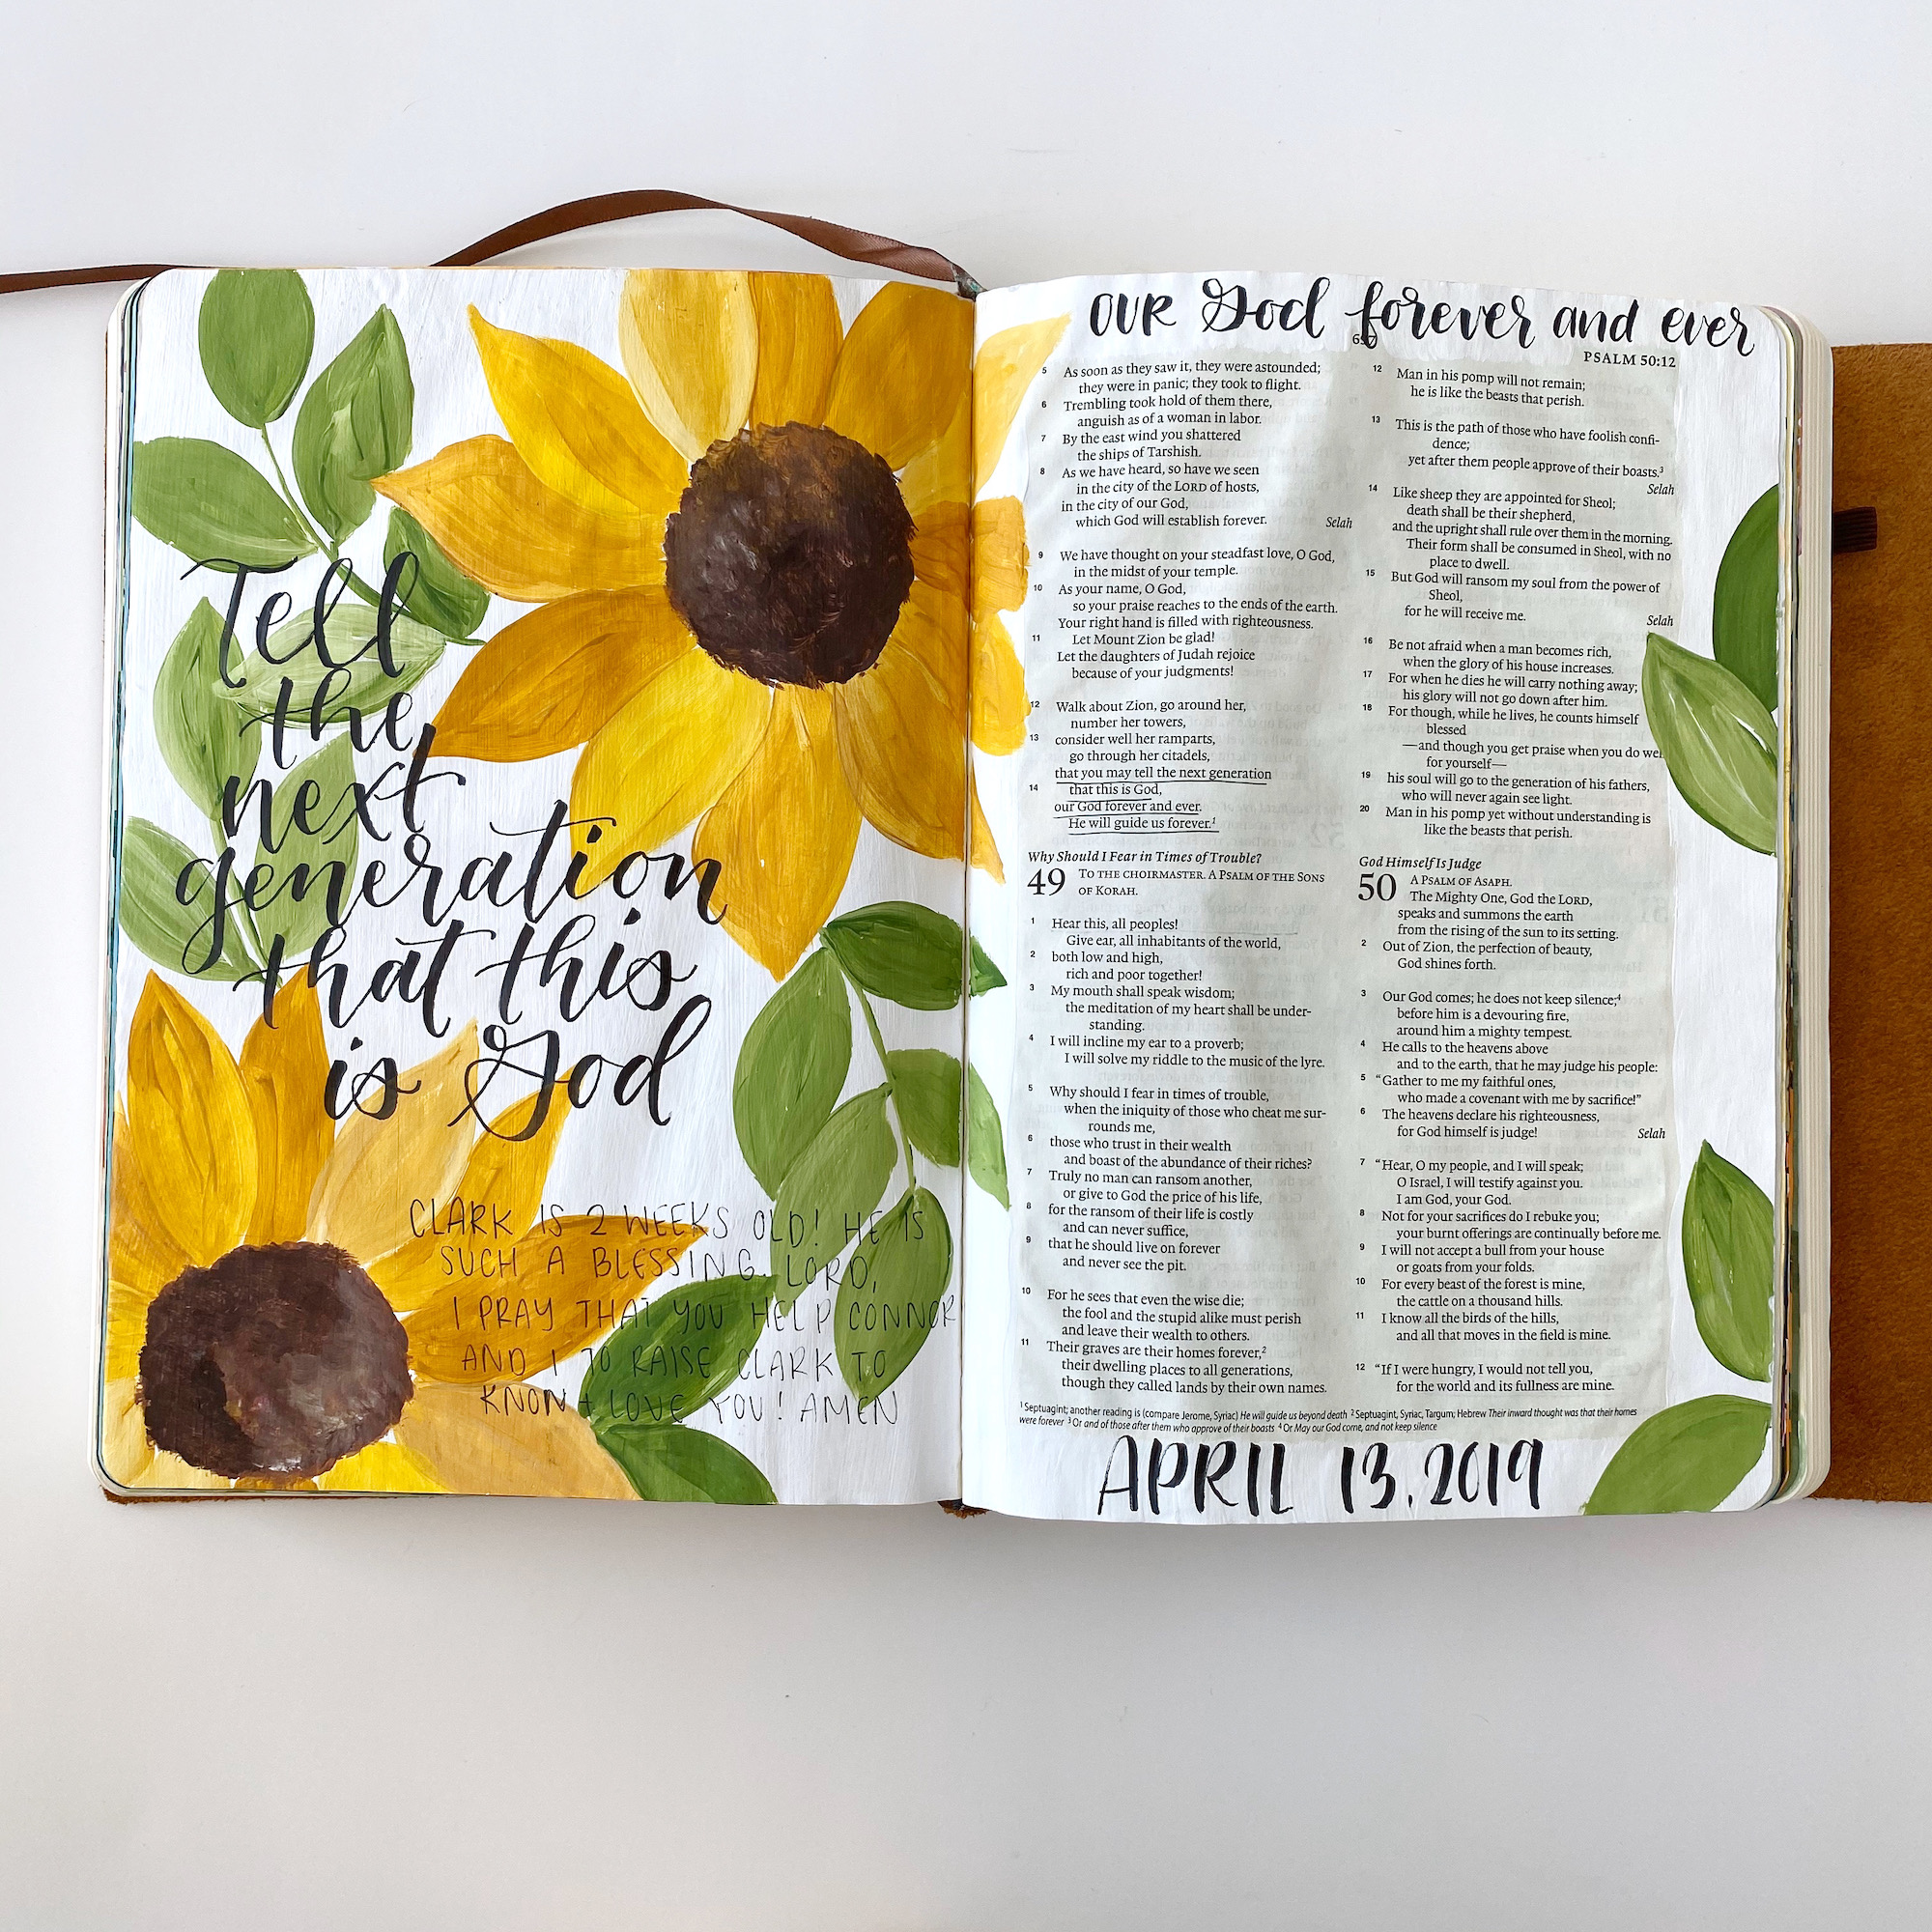 Tell
the
next
generation
that this
is God
CLARK IS 2 WEEKS OLD! HE IS
SUCH A BLESSING. LORD,
I PRAY THAT YOU HELP CONNOR
AND I TO RAISE CLARK TO
KNOW + LOVE YOU! AMEN
OUR God forever and ever
PSALM 50:12
5 As soon as they saw it, they were astounded;
they were in panic; they took to flight.
6 Trembling took hold of them there,
anguish as of a woman in labor.
7 By the east wind you shattered
the ships of Tarshish.
8 As we have heard, so have we seen
in the city of the LORD of hosts,
in the city of our God,
which God will establish forever. Selah
9 We have thought on your steadfast love, O God,
in the midst of your temple.
10 As your name, O God,
so your praise reaches to the ends of the earth.
Your right hand is filled with righteousness.
11 Let Mount Zion be glad!
Let the daughters of Judah rejoice
because of your judgments!
12 Walk about Zion, go around her,
number her towers,
13 consider well her ramparts,
go through her citadels,
that you may tell the next generation
14 that this is God,
our God forever and ever.
He will guide us forever.¹
Why Should I Fear in Times of Trouble?
49 TO THE CHOIRMASTER. A PSALM OF THE SONS
OF KORAH.
1 Hear this, all peoples!
Give ear, all inhabitants of the world,
2 both low and high,
rich and poor together!
3 My mouth shall speak wisdom;
the meditation of my heart shall be under-
standing.
4 I will incline my ear to a proverb;
I will solve my riddle to the music of the lyre.
5 Why should I fear in times of trouble,
when the iniquity of those who cheat me sur-
rounds me,
6 those who trust in their wealth
and boast of the abundance of their riches?
7 Truly no man can ransom another,
or give to God the price of his life,
8 for the ransom of their life is costly
and can never suffice,
9 that he should live on forever
and never see the pit.
10 For he sees that even the wise die;
the fool and the stupid alike must perish
and leave their wealth to others.
11 Their graves are their homes forever,²
their dwelling places to all generations,
though they called lands by their own names.
12 Man in his pomp will not remain;
he is like the beasts that perish.
13 This is the path of those who have foolish confi-
dence;
yet after them people approve of their boasts.³
Selah
14 Like sheep they are appointed for Sheol;
death shall be their shepherd,
and the upright shall rule over them in the morning.
Their form shall be consumed in Sheol, with no
place to dwell.
15 But God will ransom my soul from the power of
Sheol,
for he will receive me. Selah
16 Be not afraid when a man becomes rich,
when the glory of his house increases.
17 For when he dies he will carry nothing away;
his glory will not go down after him.
18 For though, while he lives, he counts himself
blessed
—and though you get praise when you do well
for yourself—
19 his soul will go to the generation of his fathers,
who will never again see light.
20 Man in his pomp yet without understanding is
like the beasts that perish.
God Himself Is Judge
50 A PSALM OF ASAPH.
The Mighty One, God the LORD,
speaks and summons the earth
from the rising of the sun to its setting.
2 Out of Zion, the perfection of beauty,
God shines forth.
3 Our God comes; he does not keep silence;⁴
before him is a devouring fire,
around him a mighty tempest.
4 He calls to the heavens above
and to the earth, that he may judge his people:
5 “Gather to me my faithful ones,
who made a covenant with me by sacrifice!”
6 The heavens declare his righteousness,
for God himself is judge! Selah
7 “Hear, O my people, and I will speak;
O Israel, I will testify against you.
I am God, your God.
8 Not for your sacrifices do I rebuke you;
your burnt offerings are continually before me.
9 I will not accept a bull from your house
or goats from your folds.
10 For every beast of the forest is mine,
the cattle on a thousand hills.
11 I know all the birds of the hills,
and all that moves in the field is mine.
12 “If I were hungry, I would not tell you,
for the world and its fullness are mine.
¹ Septuagint; another reading is (compare Jerome, Syriac) He will guide us beyond death ² Septuagint, Syriac, Targum; Hebrew Their inward thought was that their homes
were forever ³ Or and of those after them who approve of their boasts ⁴ Or May our God come, and not keep silence
APRIL 13. 2019